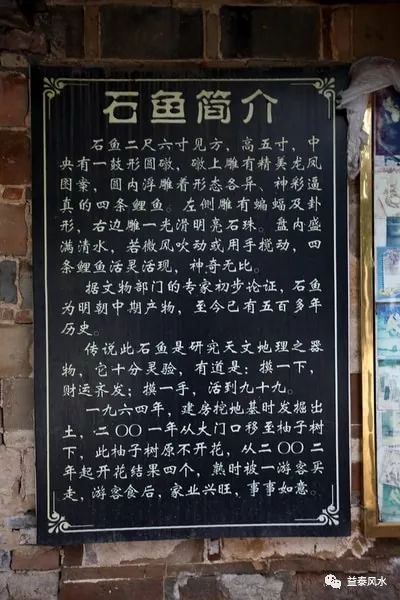 石鱼简介
石鱼二尺六寸见方，高五寸，中
央有一鼓形圆礅，礅上雕有精美龙凤
图案，圆内浮雕着形态各异、神彩逼
真的四条鲤鱼。左侧雕有蝙蝠及卦
形，右边雕一光滑明亮石珠。盘内盛
满清水，若微风吹动或用手搅动，四
条鲤鱼活灵活现，神奇无比。
据文物部门的专家初步论证，石鱼
为明朝中期产物，至今已有五百多年
历史。
传说此石鱼是研究天文地理之器
物，它十分灵验，有道是：摸一下，
财运齐发；摸一手，活到九十九。
一九六四年，建房挖地基时发掘出
土，二〇〇一年从大门口移至柚子树
下，此柚子树原不开花，从二〇〇二
年起开花结果四个，熟时被一游客买
走，游客食后，家业兴旺，事事如意。
益泰风水